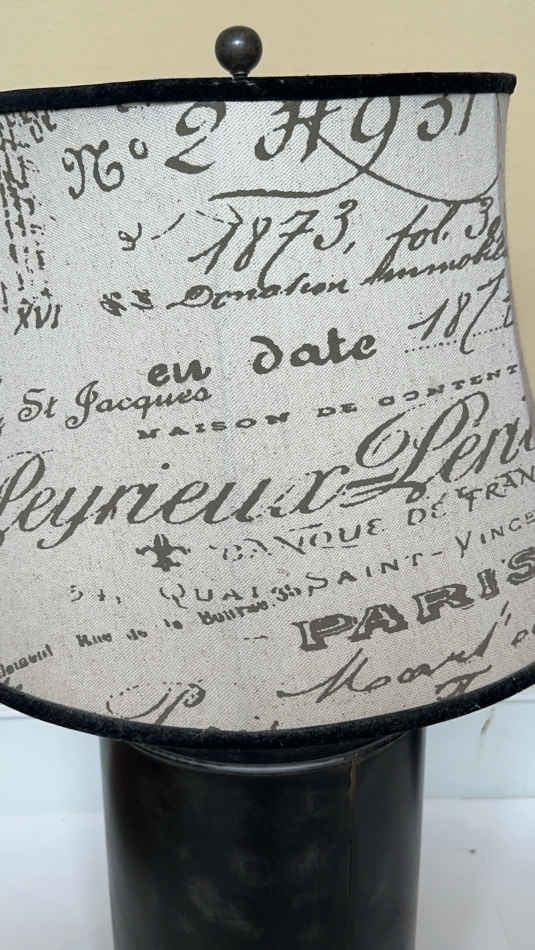 Nº 2 H 931
1873, fol. 3
XVI Donation Immobil
en date 187
St Jacques
MAISON DE CONTENT
Peyrieux-Péni
BANQUE DE FRAN
54, QUAI SAINT-VINCE
Rue de la Bourse 33,
PARIS